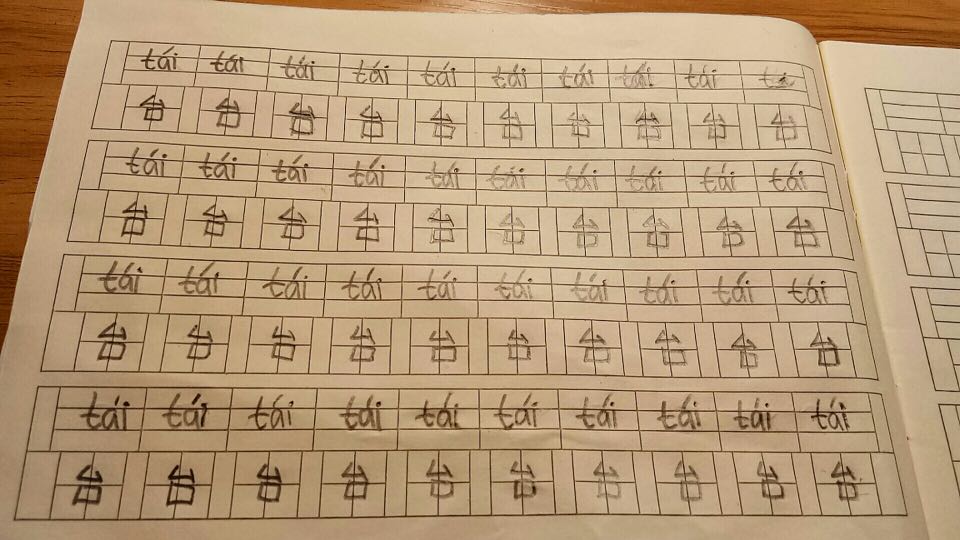 tái tái tái tái tái tái tái tái tái tái
台 台 台 台 台 台 台 台 台 台
tái tái tái tái tái tái tái tái tái tái
台 台 台 台 台 台 台 台 台 台
tái tái tái tái tái tái tái tái tái tái
台 台 台 台 台 台 台 台 台 台
tái tái tái tái tái tái tái tái tái tái
台 台 台 台 台 台 台 台 台 台